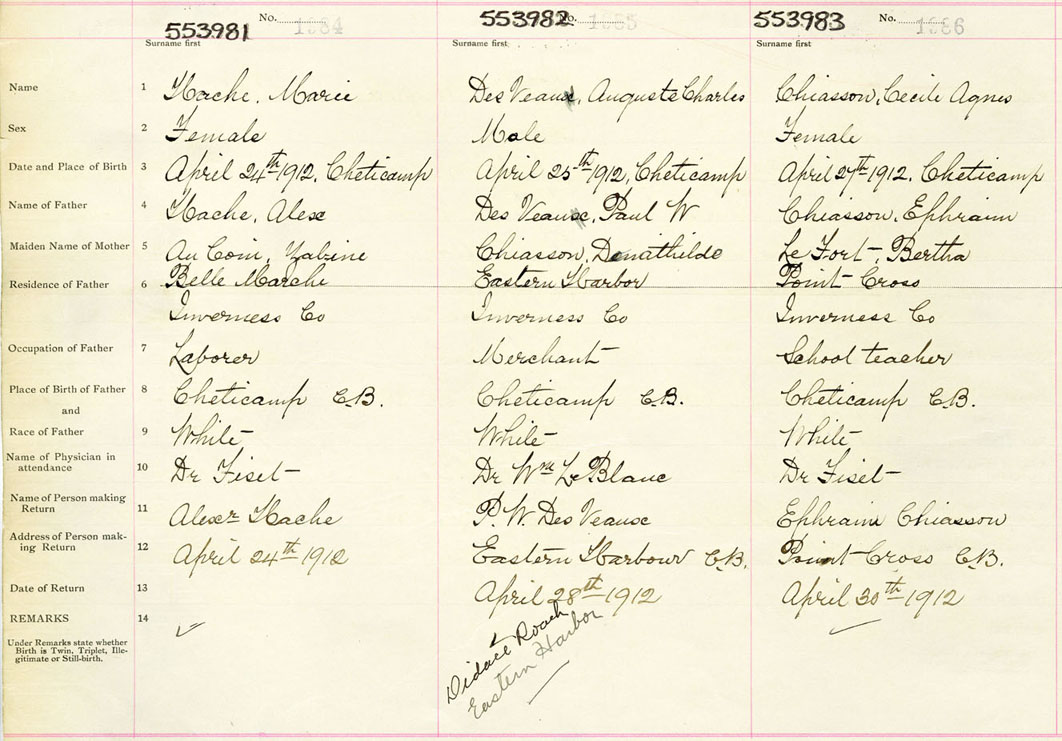 553981 No. 1984 553982 No. 1985 553983 No. 1986
Surname first Surname first Surname first
Name 1 Hache, Marie Des Veaux, Auguste Charles Chiasson, Cecile Agnes
Sex 2 Female Male Female
Date and Place of Birth 3 April 24th 1912, Cheticamp April 25th 1912, Cheticamp April 27th 1912, Cheticamp
Name of Father 4 Hache, Alex Des Veaux, Paul W Chiasson, Ephraim
Maiden Name of Mother 5 Au Coin, Zabine Chiasson, Domathilde Le Fort, Bertha
Residence of Father 6 Belle Marche Eastern Harbor Point Cross
Inverness Co Inverness Co Inverness Co
Occupation of Father 7 Laborer Merchant School teacher
Place of Birth of Father 8 Cheticamp C.B. Cheticamp C.B. Cheticamp C.B.
and
Race of Father 9 White White White
Name of Physician in
attendance 10 Dr Fiset Dr Wm LeBlanc Dr Fiset
Name of Person making
Return 11 Alexr Hache P. W. Des Veaux Ephraim Chiasson
Address of Person mak-
ing Return 12 April 24th 1912 Eastern Harbour C.B. Point Cross C.B.
Date of Return 13 April 28th 1912 April 30th 1912
REMARKS 14
Under Remarks state whether
Birth is Twin, Triplet, Ille-
gitimate or Still-birth.
Didace Roach
Eastern Harbor